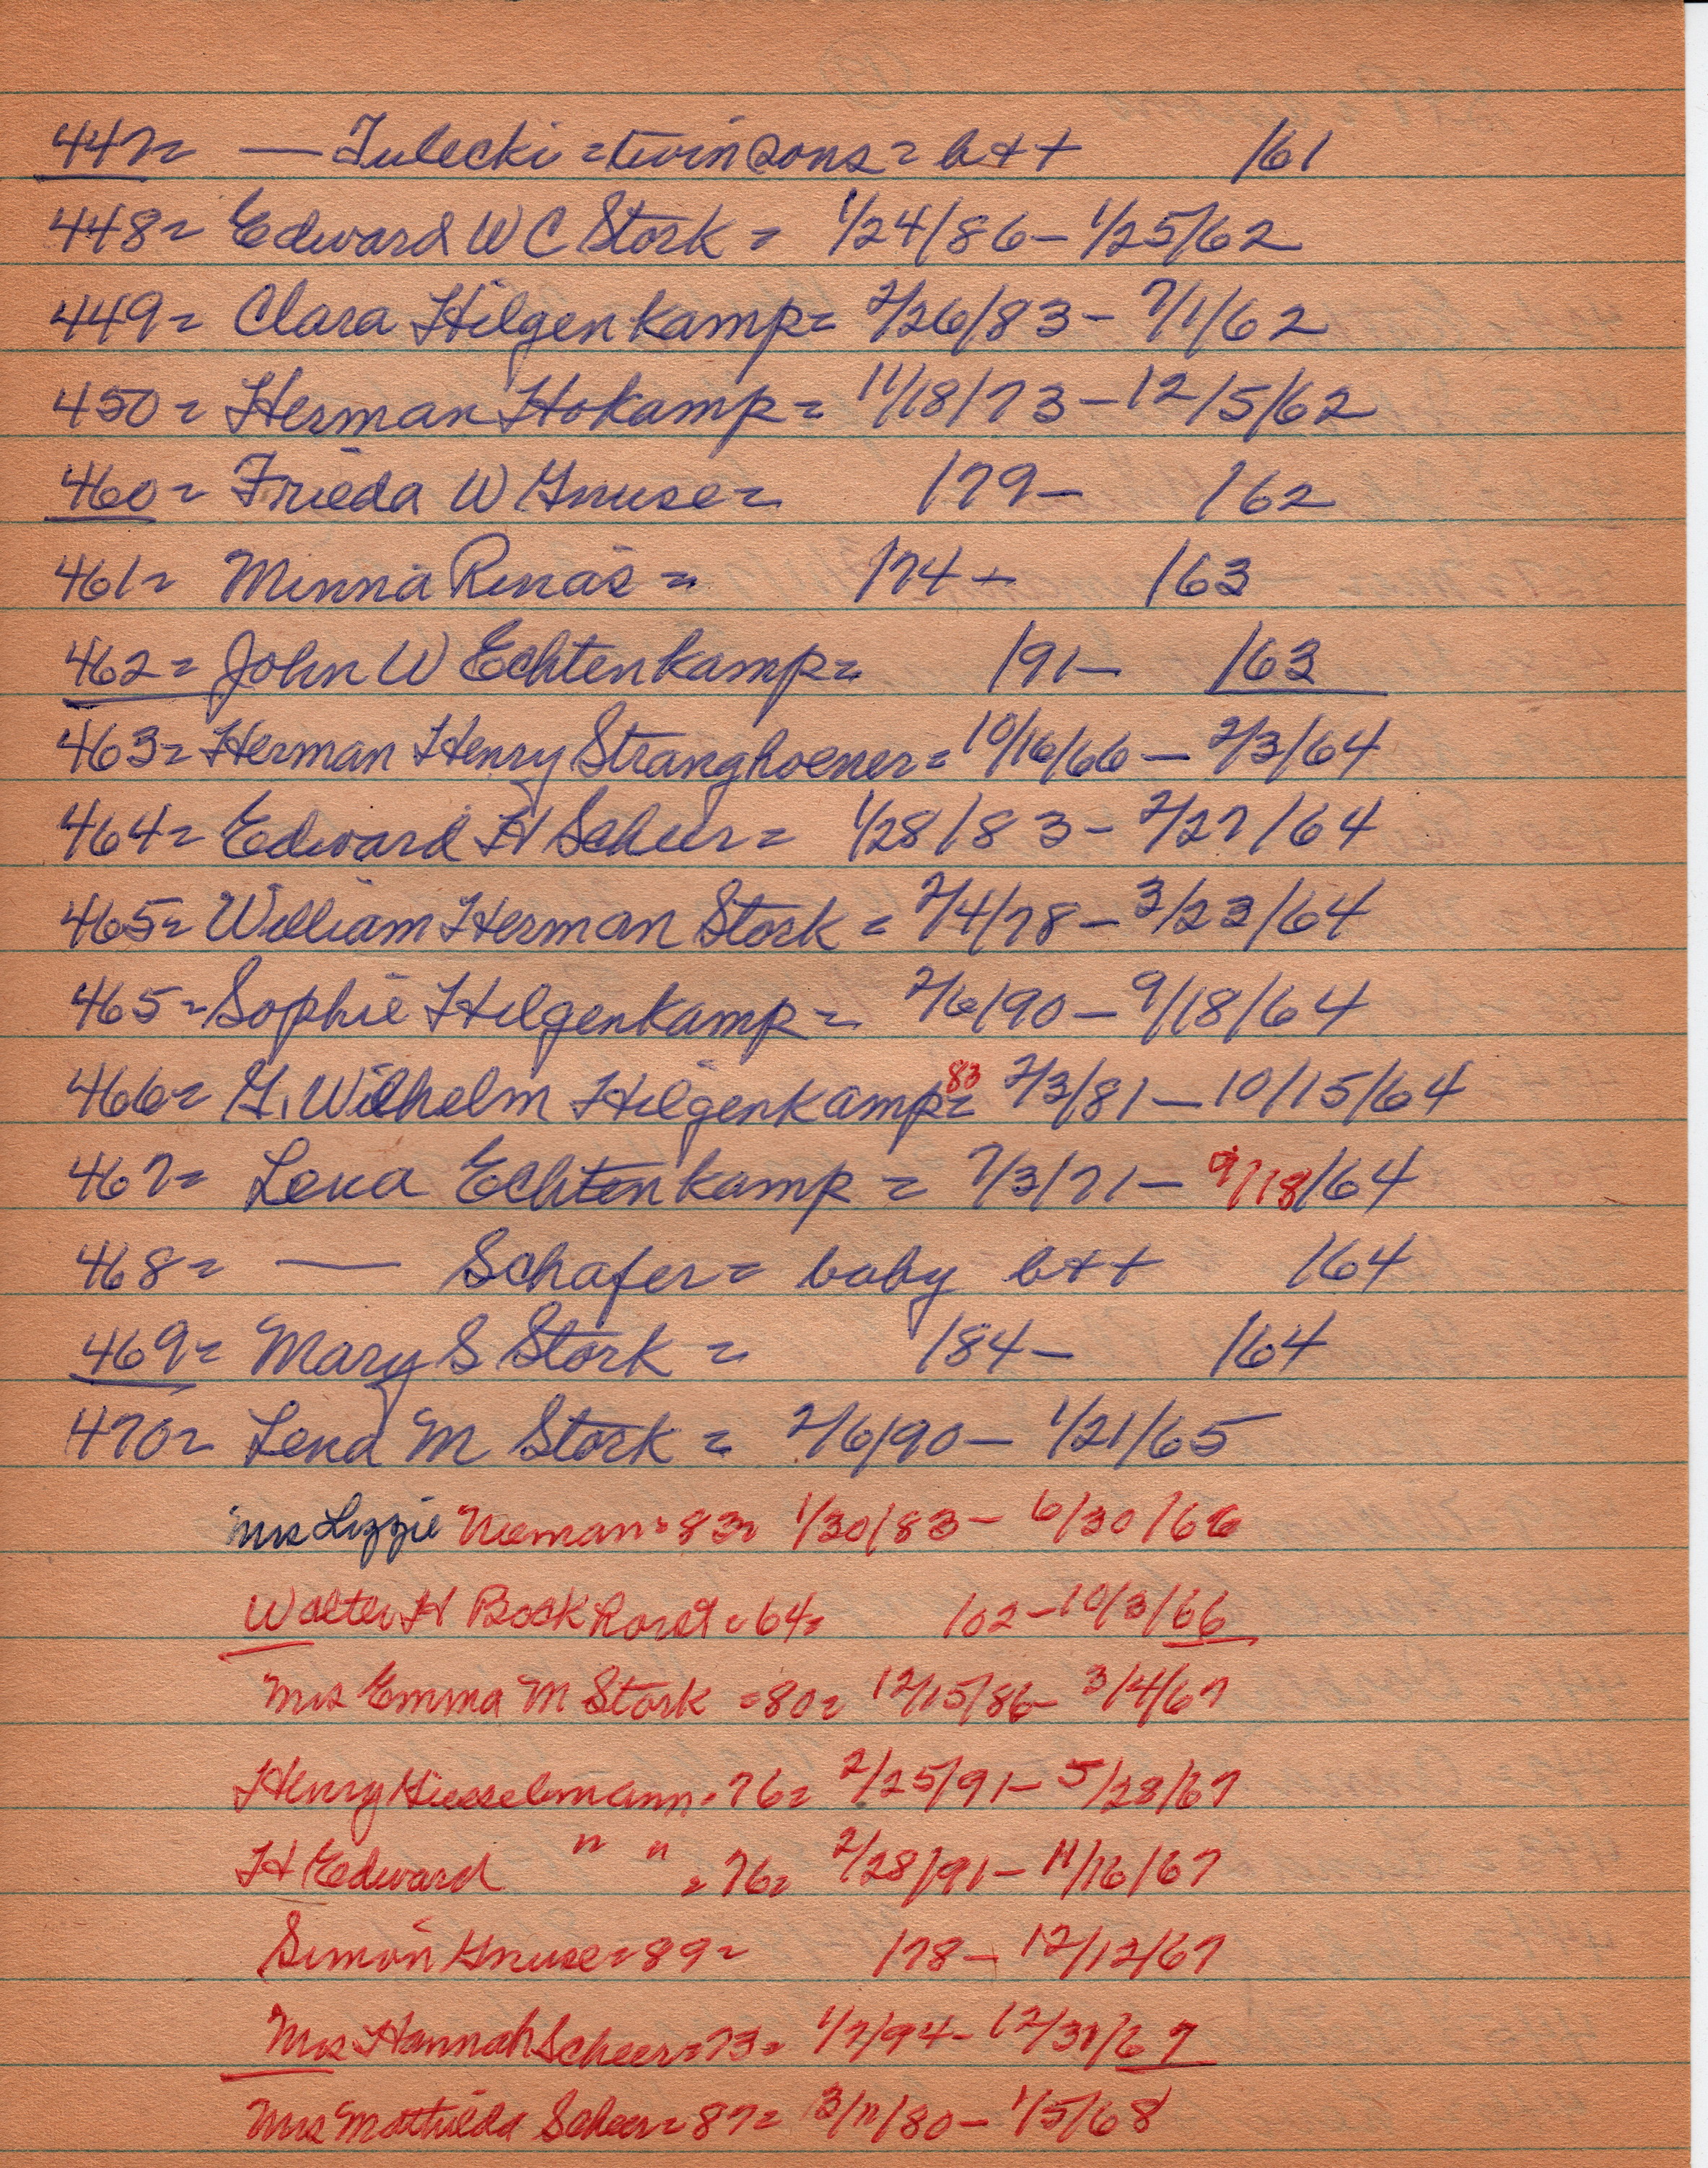 447= — Tulecki = twin sons = b++ /61
448= Edward W C Stork = 1/24/86 – 1/25/62
449= Clara Hilgenkamp = 2/26/83 – 7/1/62
450= Herman Hokamp = 11/18/73 – 12/5/62
460= Frieda W Gnuse = /79 – /62
461= Minna Renas = /74 – /63
462= John W Echtenkamp = /91 – /63
463= Herman Henry Stranghoener = 10/16/66 – 2/3/64
464= Edward H Scheer = 1/28/83 – 2/27/64
465= William Herman Stork = 2/4/78 – 3/23/64
465= Sophie Hilgenkamp = 2/6/90 – 9/18/64
466= G. Wilhelm Hilgenkamp = 83 2/3/81 – 10/15/64
467= Lena Echtenkamp = 7/3/71 – 9/18/64
468= — Schafer = baby b++ /64
469= Mary S Stork = /84 – /64
470= Lena M Stork = 2/6/90 – 1/21/65
Mrs Lizzie Nieman = 83 = 1/30/83 – 6/30/66
Walter H = 64 = /02 – 10/3/66
Mrs Emma M Stork = 80 = 12/15/86 – 3/4/67
Henry = 76 = 2/25/91 – 5/28/67
H Edward " " = 76 = 2/28/91 – 11/16/67
Simon Gnuse = 89 = /78 – 12/12/67
Mrs Hannah Scheer = 73 = 1/7/94 – 12/31/67
Mrs Mathilda Scheer = 87 = 3/11/80 – 1/5/68